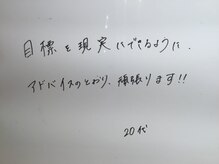 目標を現実にできるように、
アドバイスのとおり、頑張ります!!
20代